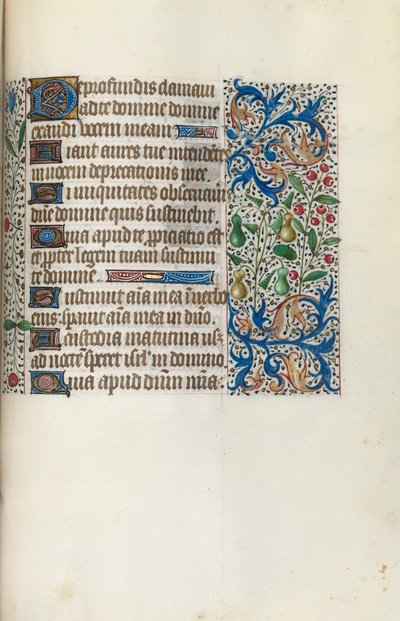 De profundis clamaui
ad te domine domine
exaudi vocem meam
Fiant aures tue intendētes
in uocem deprecationis mee.
Si iniquitates obseruau
dñe domine quis sustinebit.
Quia apud te propiciatio est
et propter legem tuam sustinui
te domine.
Sustinuit aīa mea in verbo
eius. sperauit aīa mea in dño.
A custodia matutina us
ad noctē. speret isrl' in domino
Quia apud dñm mīa